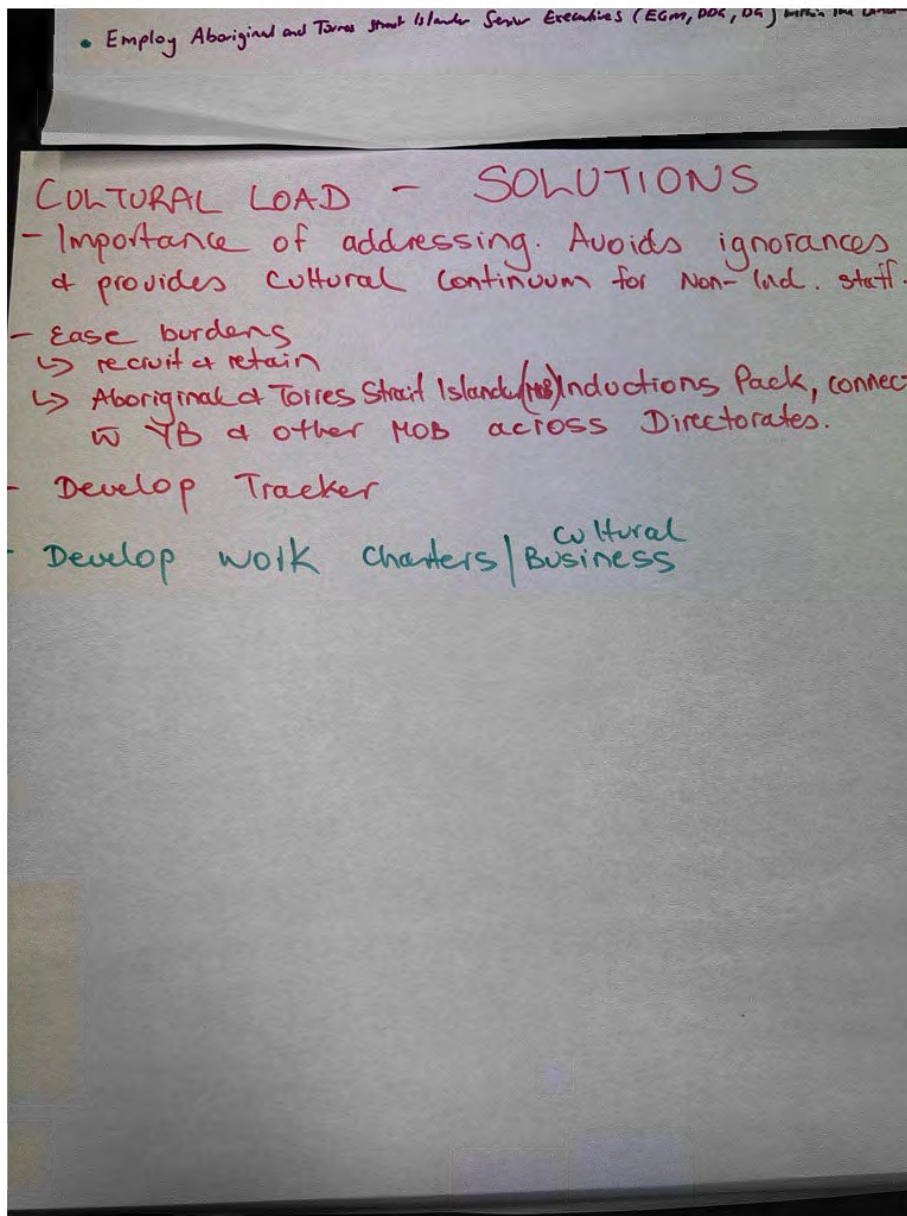 • Employ Aboriginal and Torres Strait Islander Senior Executives (EGM, DDG, DG) within the
CULTURAL LOAD - SOLUTIONS
- Importance of addressing. Avoids ignorances
& provides Cultural Continuum for Non-Ind. staff.
- Ease burdens
↳ recruit & retain
↳ Aboriginal & Torres Strait Islander (MOB) Inductions Pack, connect
w YB & other MOB across Directorates.
- Develop Tracker
- Develop work charters | Cultural Business